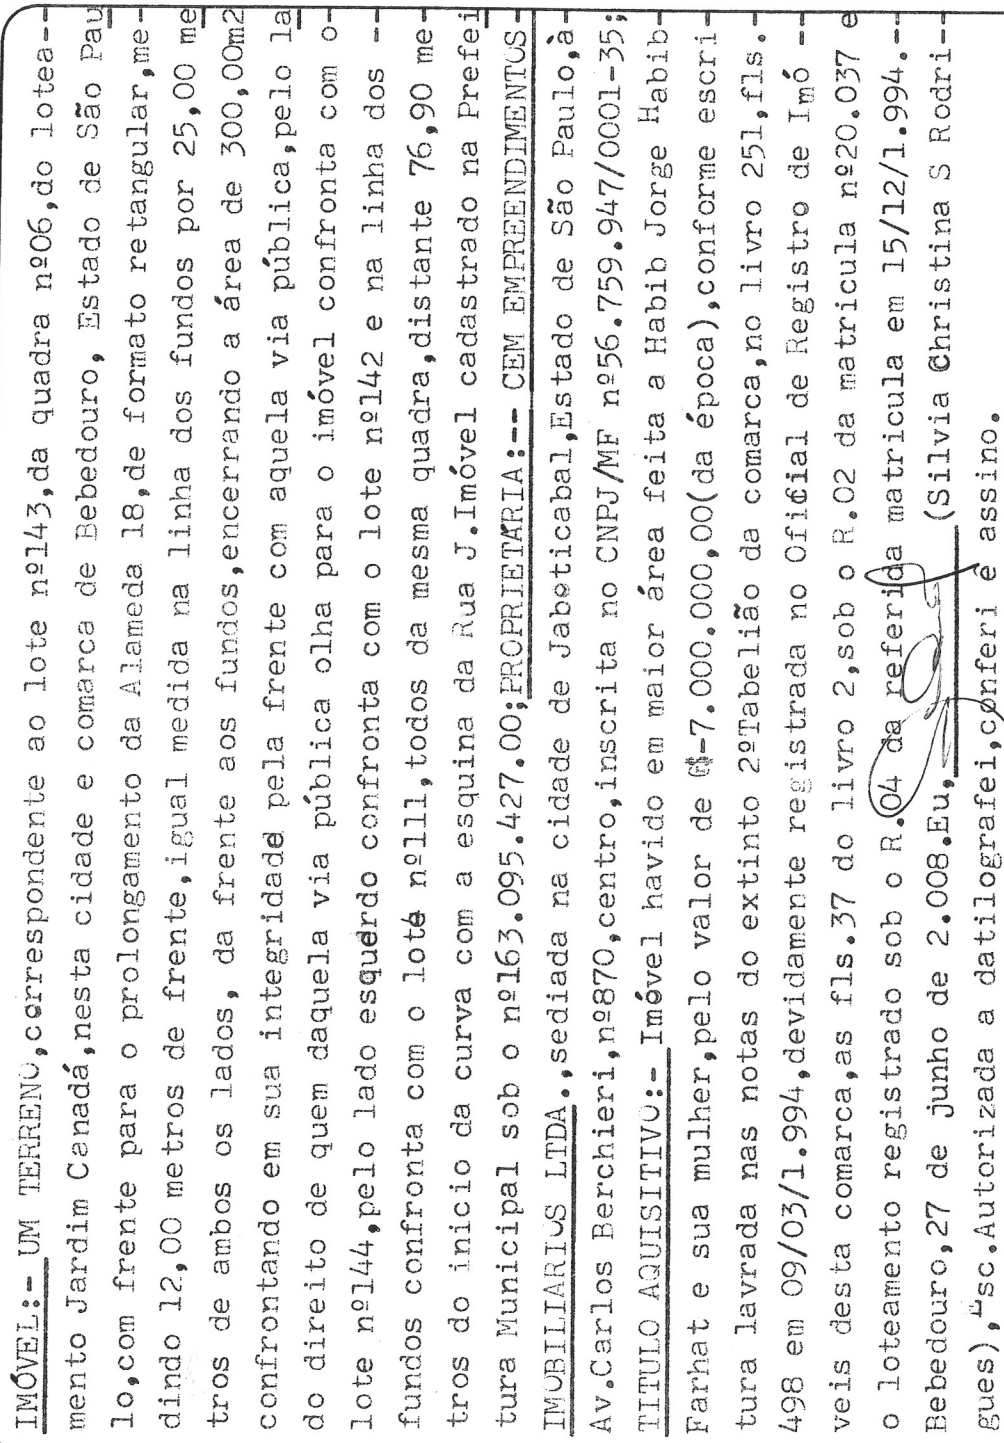 IMÓVEL:- UM TERRENO,correspondente ao lote nº143,da quadra nº06,do lotea-
mento Jardim Canadá,nesta cidade e comarca de Bebedouro, Estado de São Pau
lo,com frente para o prolongamento da Alameda 18,de formato retangular,me
dindo 12,00 metros de frente,igual medida na linha dos fundos por 25,00 me
tros de ambos os lados, da frente aos fundos,encerrando a área de 300,00m2
confrontando em sua integridade pela frente com aquela via pública,pelo la
do direito de quem daquela via pública olha para o imóvel confronta com o-
lote nº144,pelo lado esquerdo confronta com o lote nº142 e na linha dos -
fundos confronta com o lote nº111,todos da mesma quadra,distante 76,90 me-
tros do inicio da curva com a esquina da Rua J.Imóvel cadastrado na Prefei
tura Municipal sob o nº163.095.427.00;PROPRIETÁRIA:-- CEM EMPREENDIMENTOS
IMOBILIARIOS LTDA.,sediada na cidade de Jaboticabal,Estado de São Paulo,à-
Av.Carlos Berchieri,nº870,centro,inscrita no CNPJ/MF nº56.759.947/0001-35;
TITULO AQUISITIVO:- Imóvel havido em maior área feita a Habib Jorge Habib
Farhat e sua mulher,pelo valor de C$-7.000.000,00(da época),conforme escri
tura lavrada nas notas do extinto 2ºTabelião da comarca,no livro 251,fls.
498 em 09/03/1.994,devidamente registrada no Oficial de Registro de Imó -
veis desta comarca,as fls.37 do livro 2,sob o R.02 da matricula nº20.037 e
o loteamento registrado sob o R.04 da referida matricula em 15/12/1.994.-
Bebedouro,27 de junho de 2.008.Eu, (Silvia Christina S Rodri-
gues),Esc.Autorizada a datilografei,conferi e assino.